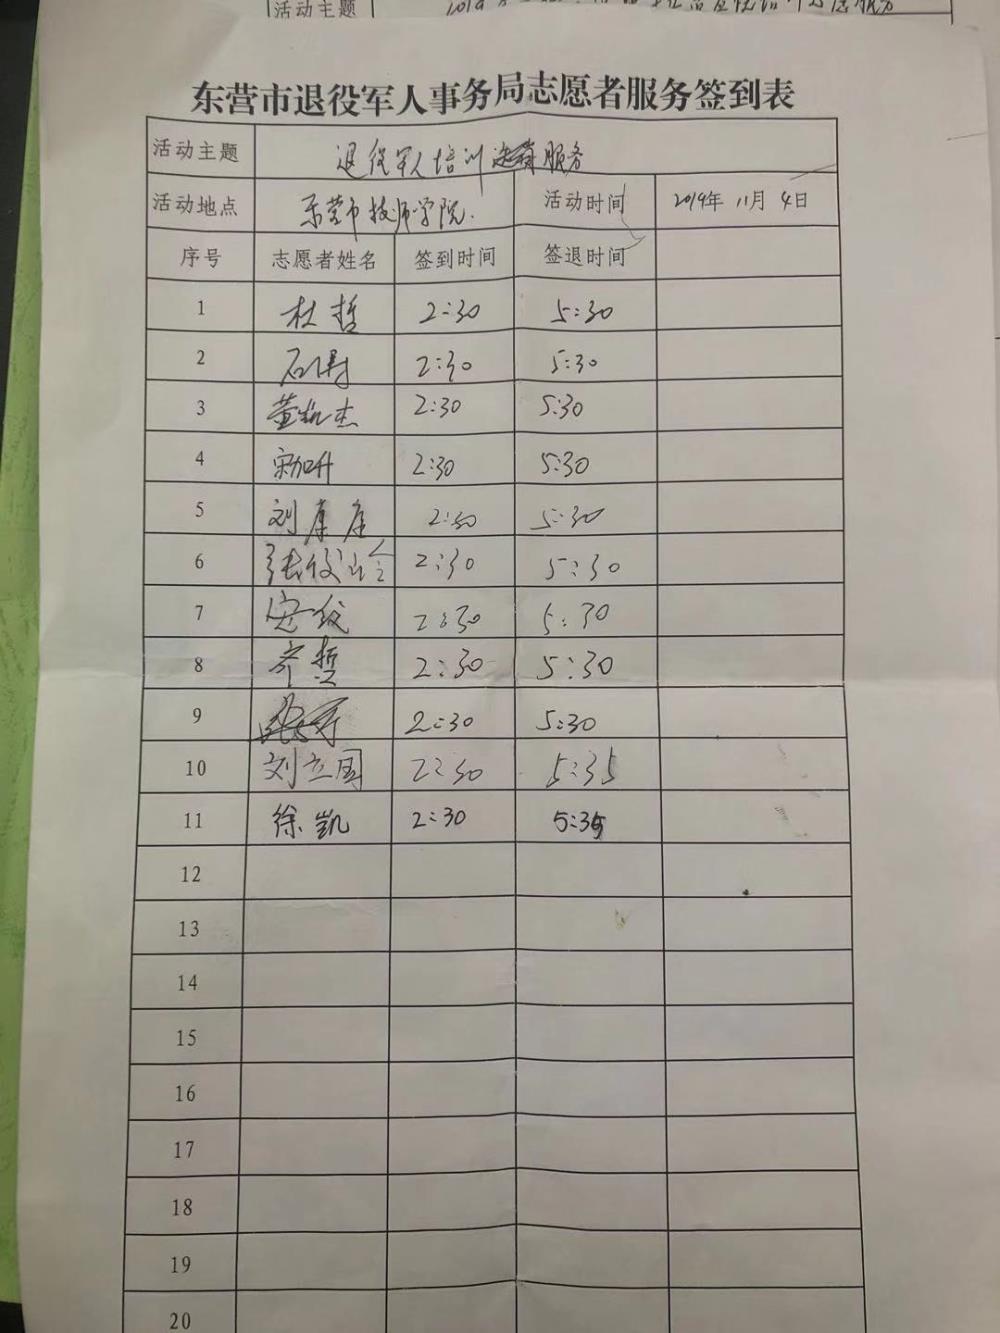 活动主题
东营市退役军人事务局志愿者服务签到表
活动主题 退役军人培训志愿服务
活动地点 东营市技师学院. 活动时间 2019年 11月 4日
序号 志愿者姓名 签到时间 签退时间
1 杜哲 2:30 5:30
2 2:30 5:30
3 董凯杰 2:30 5:30
4 2:30 5:30
5 刘 2:30 5:30
6 张 2:30 5:30
7 2:30 5:30
8 齐哲 2:30 5:30
9 2:30 5:30
10 刘立国 2:30 5:35
11 徐凯 2:30 5:35
12
13
14
15
16
17
18
19
20